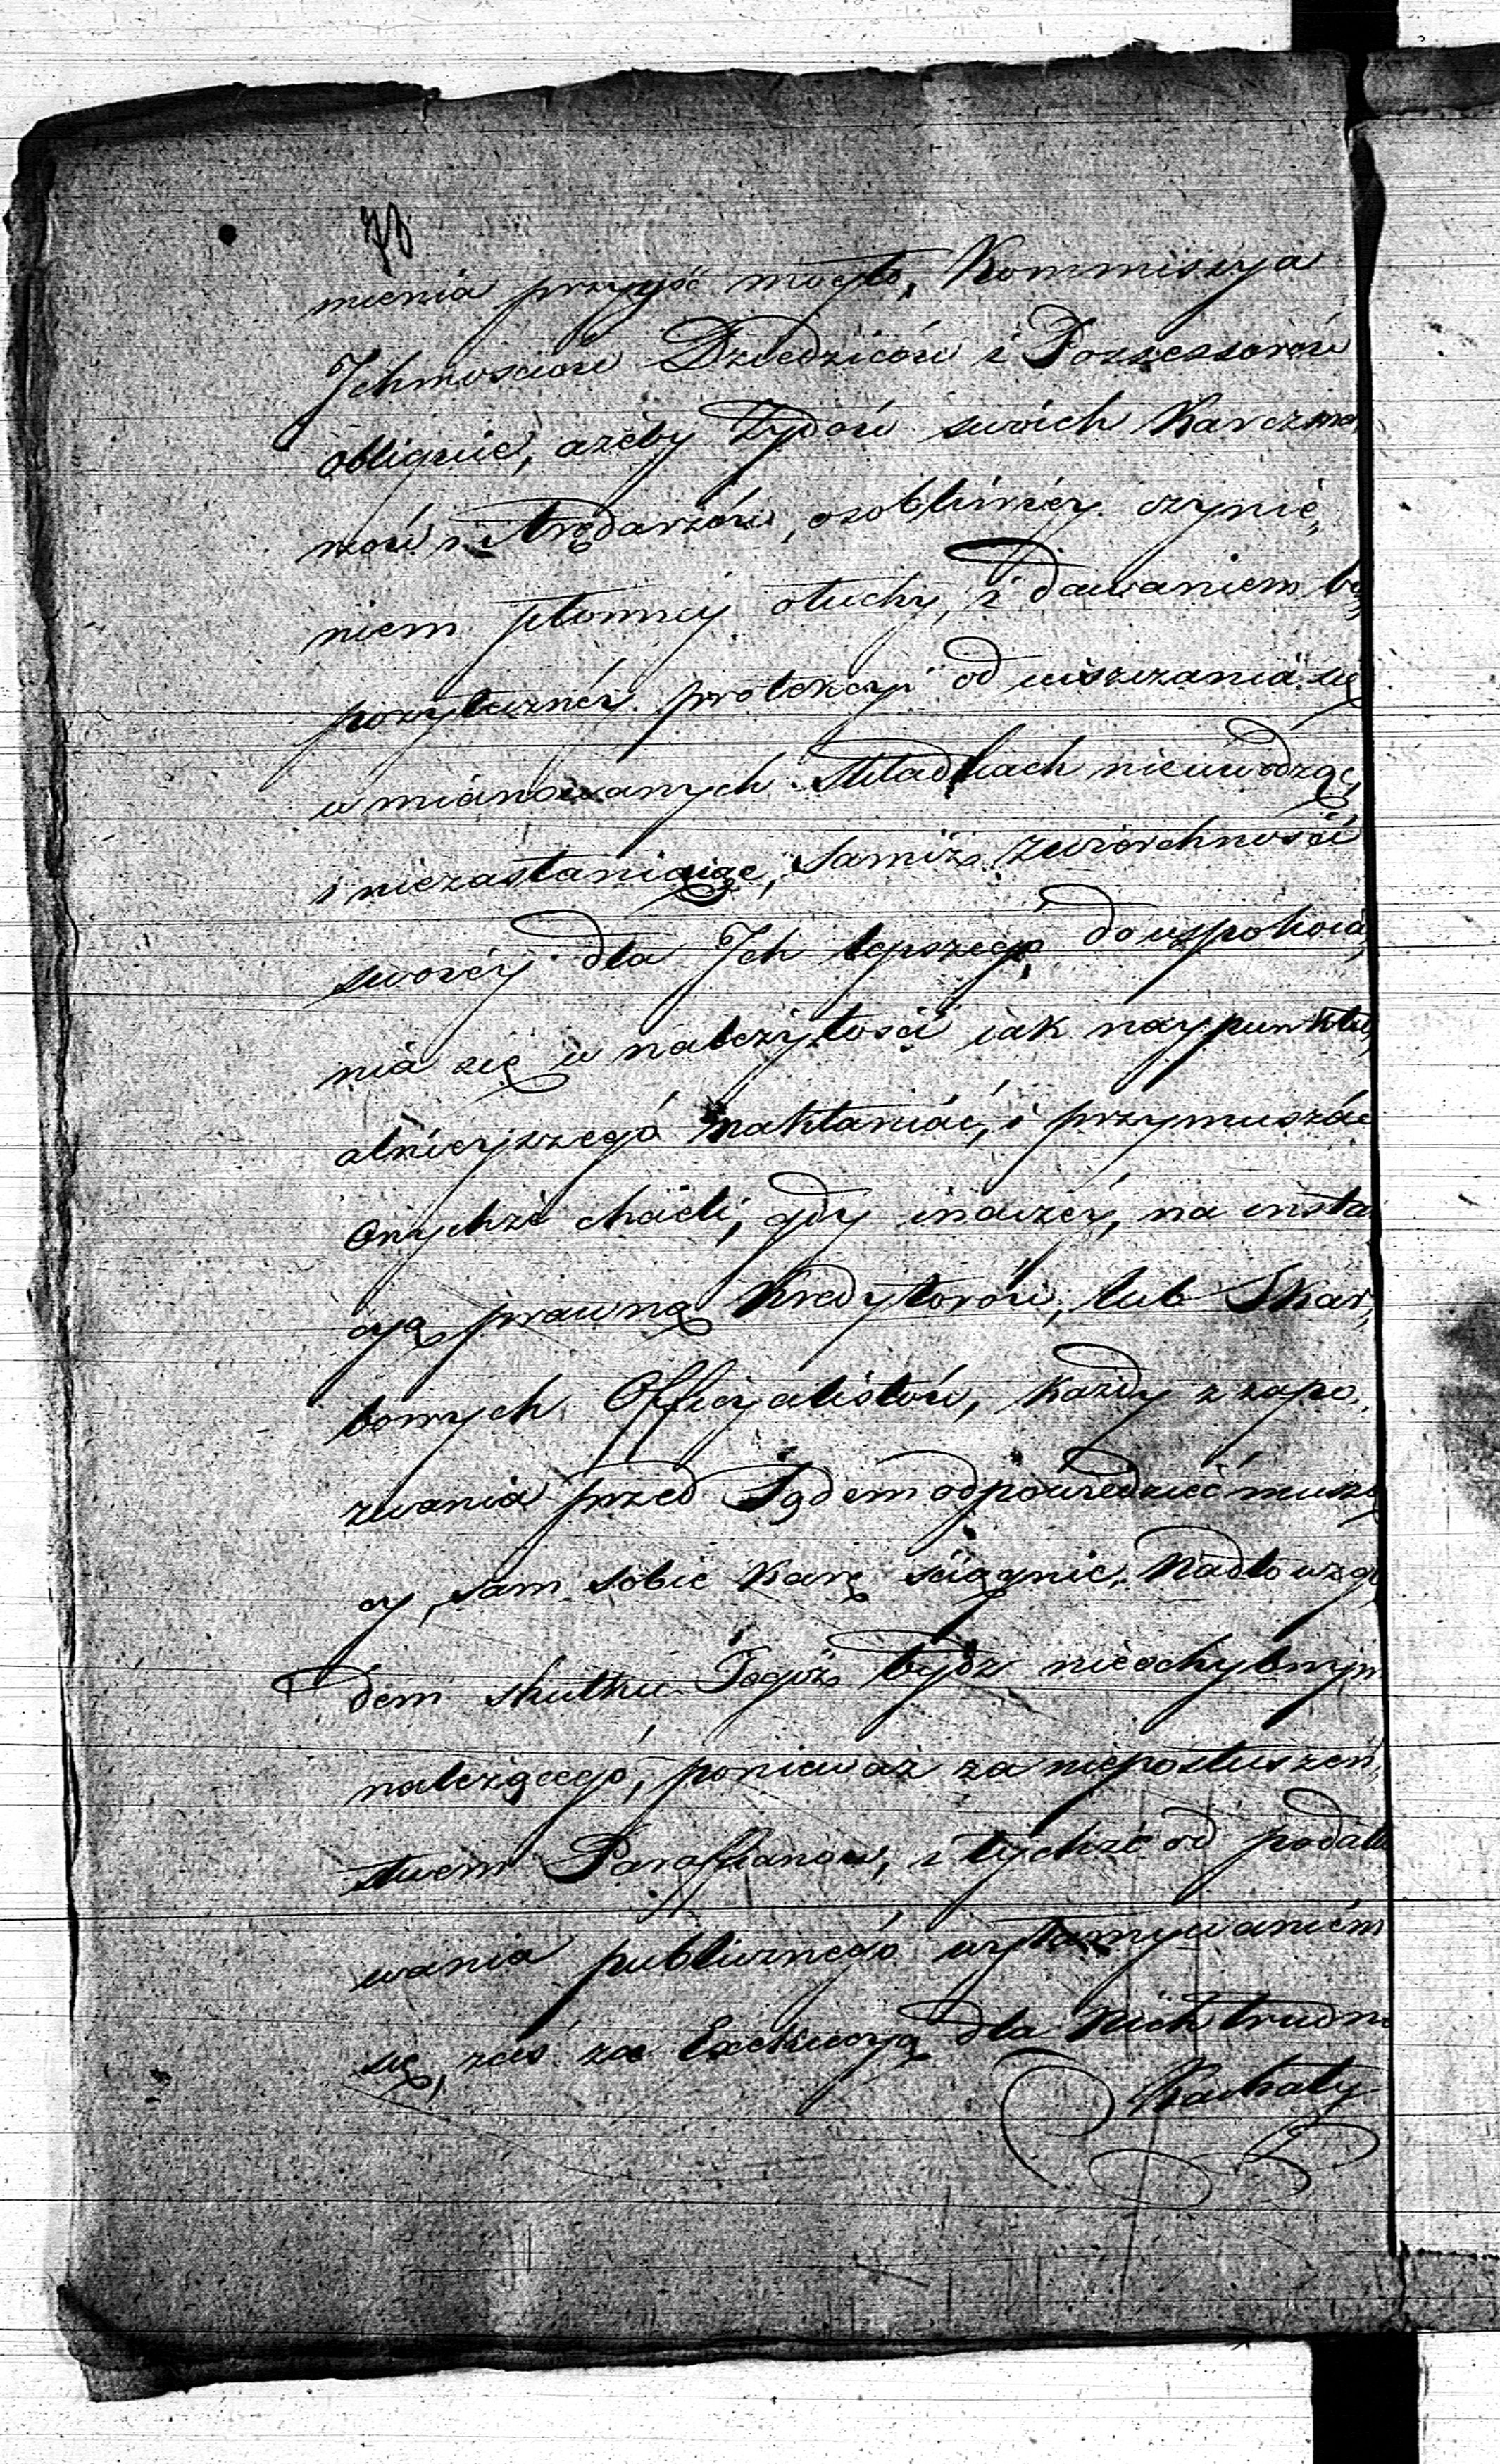 73
mienia przyyść mogło, Kommissya
Jchmosciow Dziedziców i Possessorów
obliguie, ażeby Żydów swoich Karczma,
rzów i Arędarzów, osobliwiey czynie,
niem płonnej otuchy, i dawaniem
pozyteczney protekcyi od uiszczania się
w mianowanych składkach nieuwodząc,
i niezastaniaiąc, samiż zwierchności
swoiéy dla Jch lepszego do uspokoia,
nia się w należytości iak naypunktu,
alnieyszego nakłaniać, i przymuszać
onychże chcieli, gdy inaczéy, na insta
cyą prawną Kredytorów, lub Skar,
bowych Officyalistów, każdy z zapo,
zwania przed Sądem odpowiedzieć muszą
cy, sam sobie Karę sciągnie. Nadto wzglę
dem skutku Tegoż bydz nieochybnym
należącego, ponieważ za nieposłuszeń,
stwem Paraffianow, i tychże od podatko
wania publicznego wyłamywaniem
się, zaś za Exekucyą dla Nich trudno
Kachały